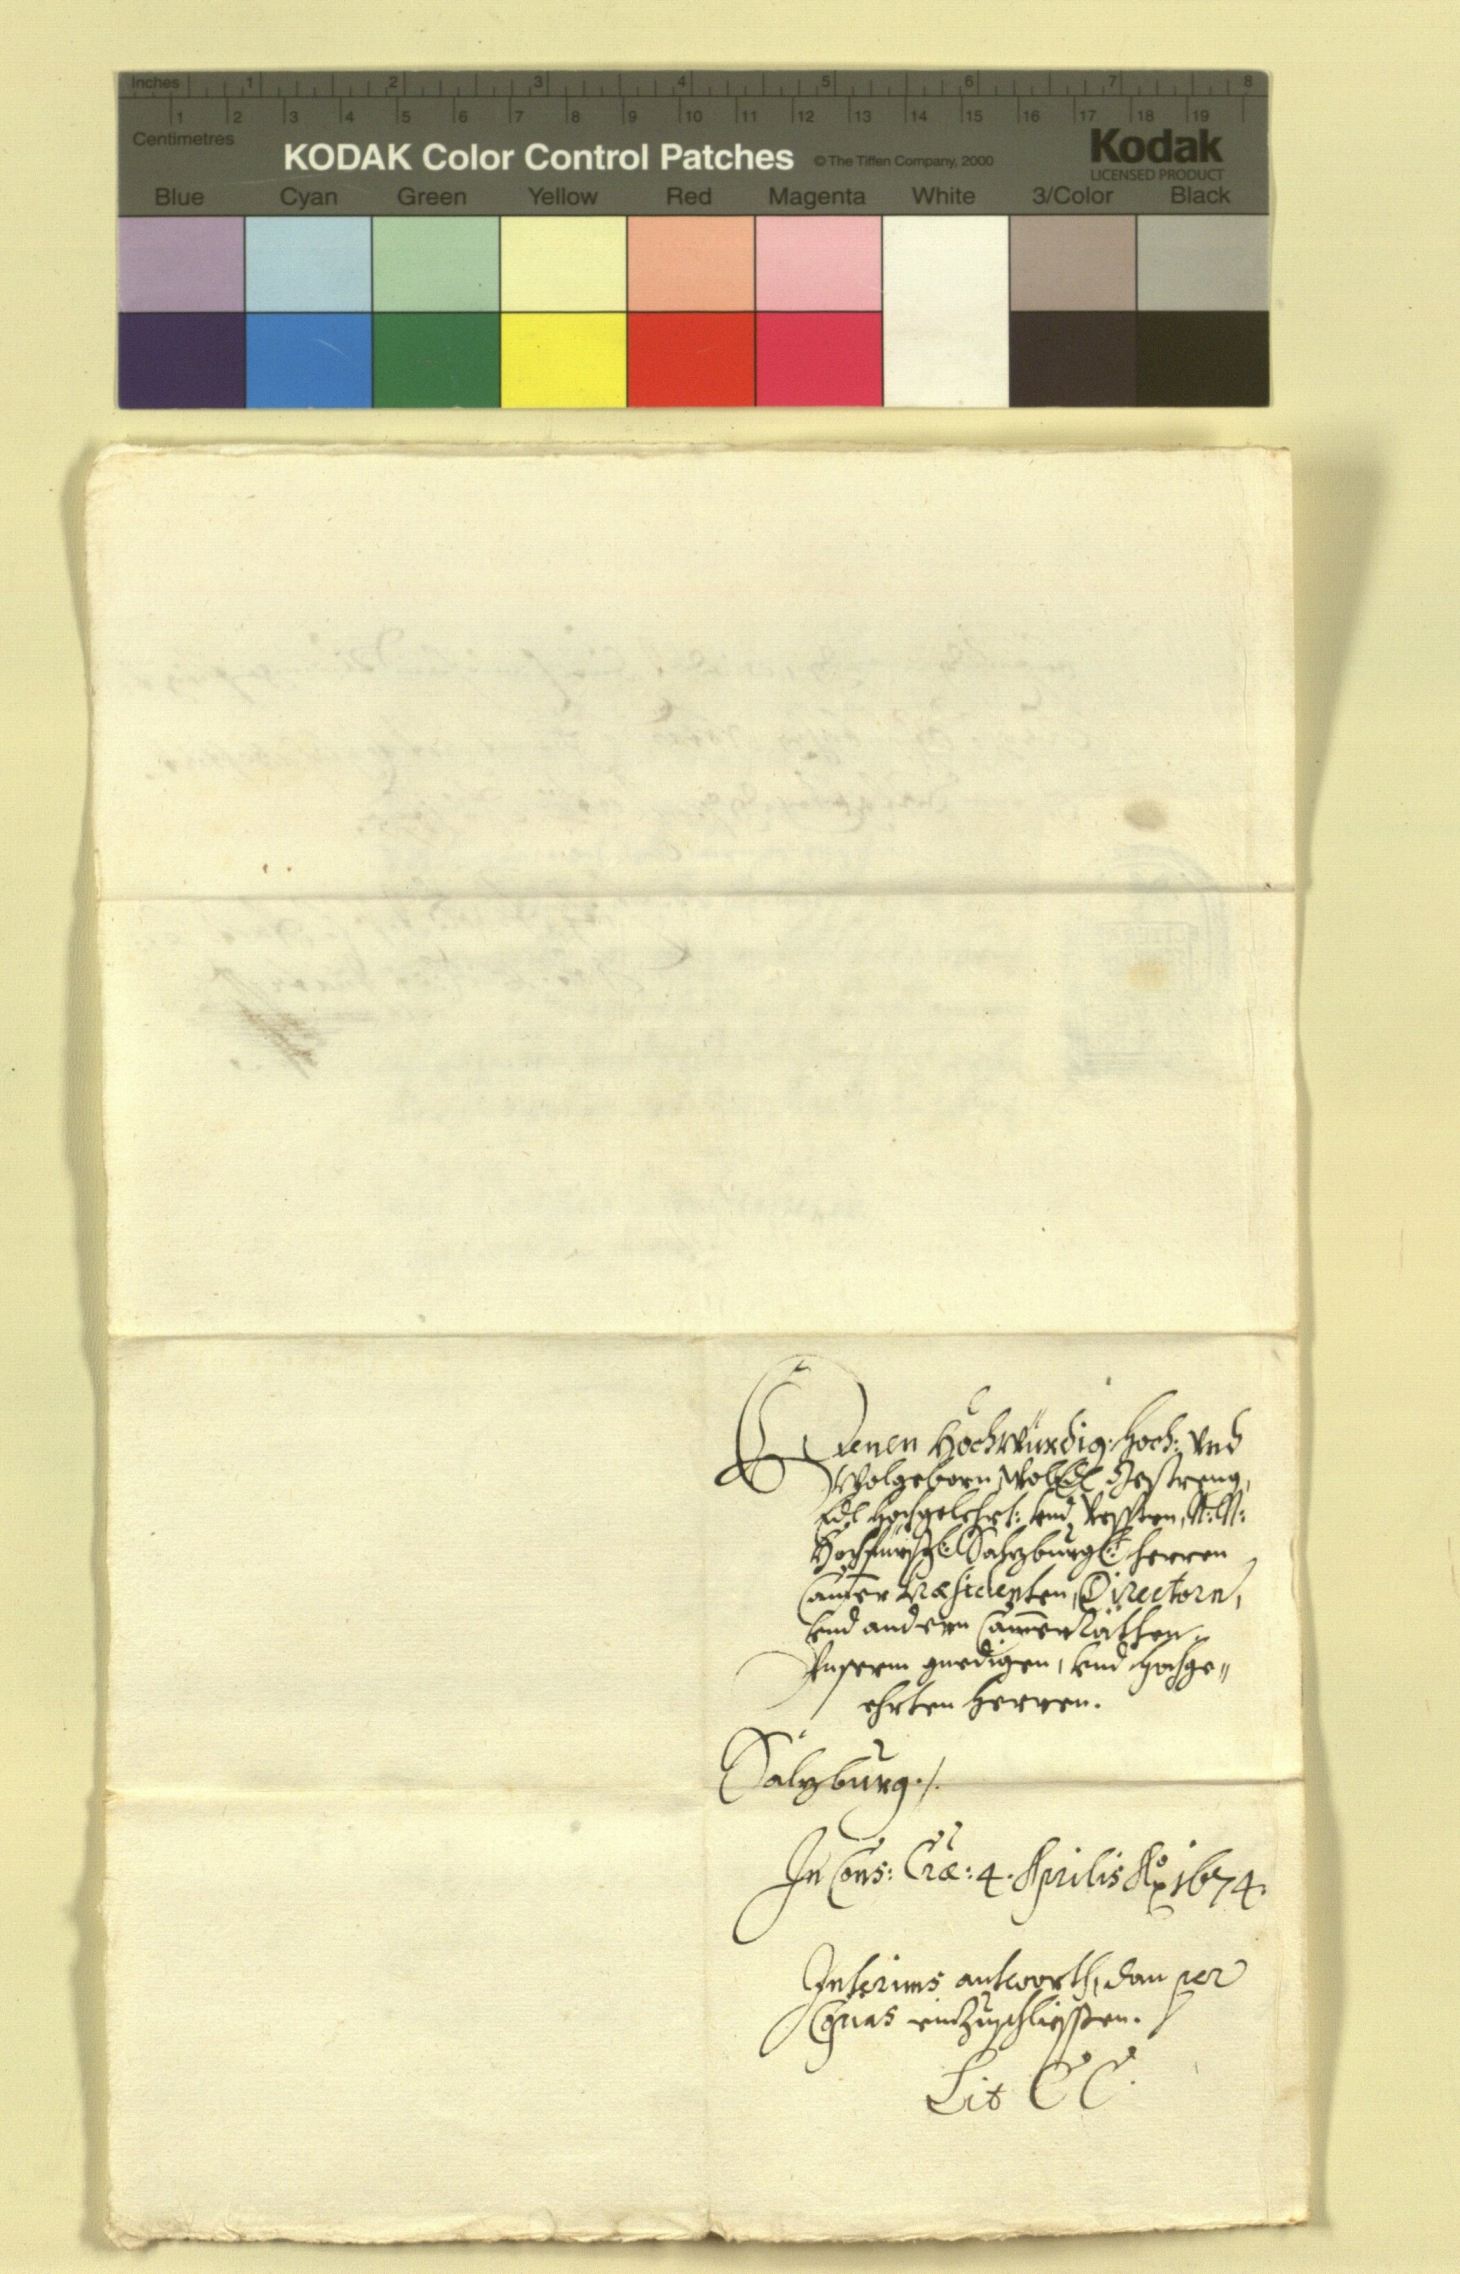 Inches 1 2 3 4 5 6 7 8
1 2 3 4 5 6 7 8 9 10 11 12 13 14 15 16 17 18 19
Centimetres
KODAK Color Control Patches © The Tiffen Company, 2000 Kodak
LICENSED PRODUCT
Blue Cyan Green Yellow Red Magenta White 3/Color Black
Denen Hochwürdig: Hoch: und
Wolgeborn, WolEdl Gestreng,
Edl Hochgelehrt: und Vessten, N: N:
Hochfürstl: Salzburgl: Herren
Cam̅er Præsidenten, Directorn,
und andern Cam̅erRäthen,
Unserm gnedigen, und Hochge„
ehrten Herren.
Salzburg./.
In Cons: Cræ: 4. Aprilis Ao 1674.
Interims antworth, dan per
einzuschliessen.
Lit C C.